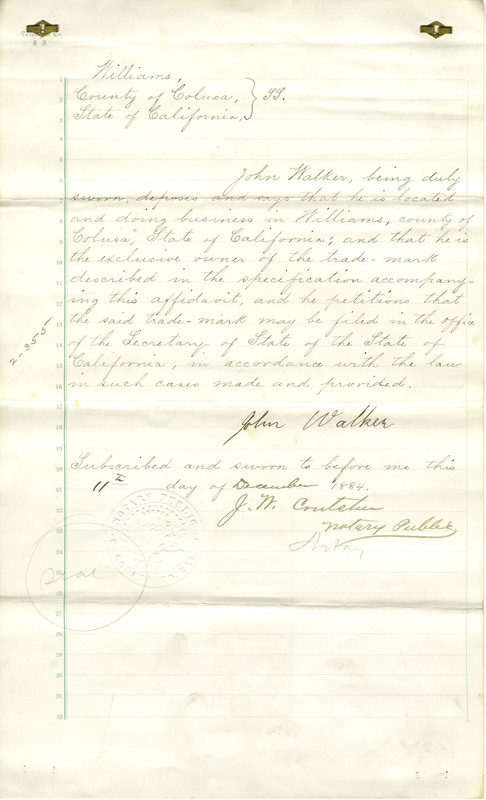 Williams,
County of Colusa, } SS.
State of California,
John Walker, being duly
sworn, deposes and says that he is located
and doing business in Williams, county of
Colusa, State of California; and that he is
the exclusive owner of the trade-mark
described in the specification accompany-
ing this affidavit, and he petitions that
the said trade-mark may be filed in the office
of the Secretary of State of the State of
California, in accordance with the law
in such cases made and provided.
2-355
John Walker
Subscribed and sworn to before me this
11th day of December 1884.
J. W. Crutcher
Notary Public
NOTARY PUBLIC
Seal
1
2
3
4
5
6
7
8
9
10
11
12
13
14
15
16
17
18
19
20
21
22
23
24
25
26
27
28
29
30
31
32